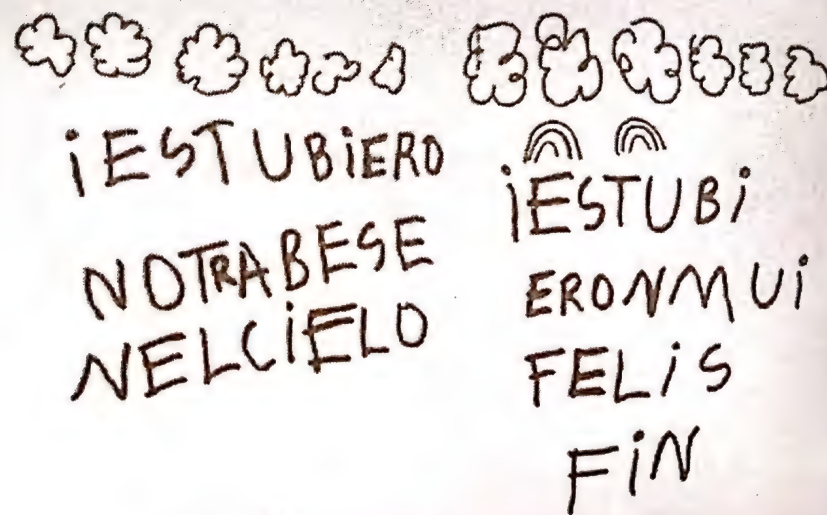 iESTUBiERO
NOTRABESE
NELCiELO
iESTUBi
ERONMUi
FELiS
FiN